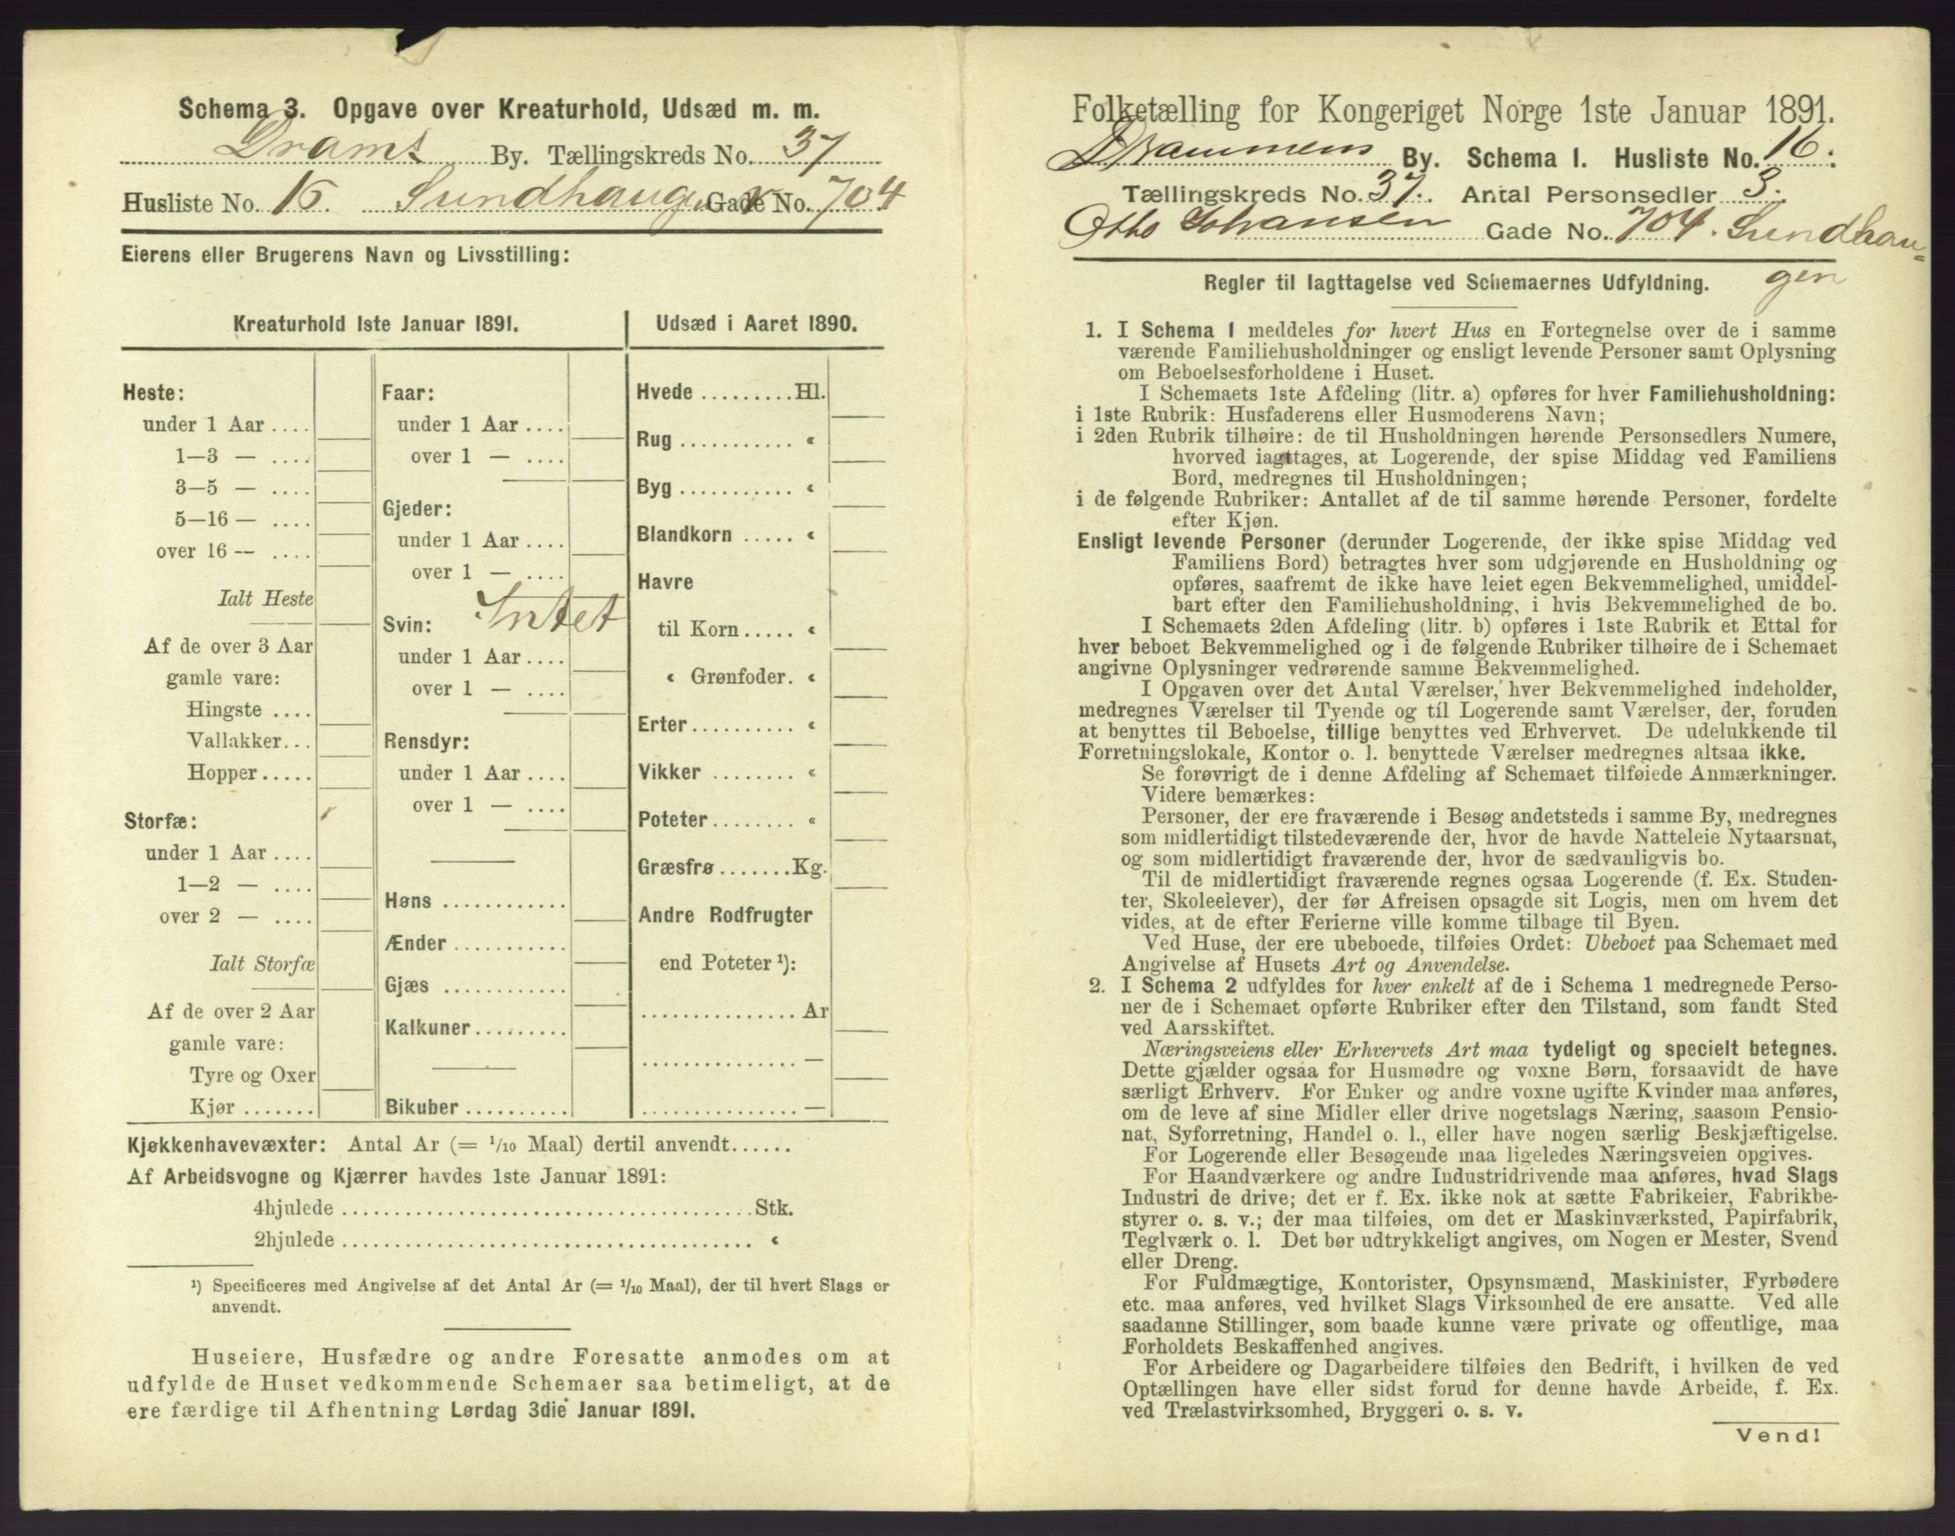 Schema 3. Opgave over Kreaturhold, Udsæd m. m.
Drams By. Tællingskreds No. 37
Husliste No. 16. Sundhaugen Gade No. 704
Eierens eller Brugerens Navn og Livsstilling:
Kreaturhold 1ste Januar 1891.
Heste:
under 1 Aar ....
1—3 — ....
3—5 — ....
5—16 — ....
over 16 — ....
Ialt Heste
Af de over 3 Aar
gamle vare:
Hingste ....
Vallakker...
Hopper.....
Storfæ:
under 1 Aar ....
1—2 — ....
over 2 — ....
Ialt Storfæ
Af de over 2 Aar
gamle vare:
Tyre og Oxer
Kjør .......
Faar:
under 1 Aar ....
over 1 — ....
Gjeder:
under 1 Aar ....
over 1 — ....
Intet
Svin:
under 1 Aar ....
over 1 — ....
Rensdyr:
under 1 Aar ....
over 1 — ....
Høns ............
Ænder ...........
Gjæs ............
Kalkuner.........
Bikuber ..........
Udsæd i Aaret 1890.
Hvede .........Hl.
Rug ........... «
Byg ........... «
Blandkorn ..... «
Havre
til Korn ..... «
« Grønfoder. «
Erter.......... «
Vikker ........ «
Poteter........ «
Græsfrø .......Kg.
Andre Rodfrugter
end Poteter ¹):
............... Ar
............... —
............... —
Kjøkkenhavevæxter: Antal Ar (= 1/10 Maal) dertil anvendt......
Af Arbeidsvogne og Kjærrer havdes 1ste Januar 1891:
4hjulede ........................................Stk.
2hjulede ........................................ «
¹) Specificeres med Angivelse af det Antal Ar (= 1/10 Maal), der til hvert Slags er
anvendt.
Huseiere, Husfædre og andre Foresatte anmodes om at
udfylde de Huset vedkommende Schemaer saa betimeligt, at de
ere færdige til Afhentning Lørdag 3die Januar 1891.
Folketælling for Kongeriget Norge 1ste Januar 1891.
Drammens By. Schema I. Husliste No. 16.
Tællingskreds No. 37. Antal Personsedler 3.
Otto Johansen Gade No. 704. Sundhau-
gen
Regler til Iagttagelse ved Schemaernes Udfyldning.
1. I Schema 1 meddeles for hvert Hus en Fortegnelse over de i samme
værende Familiehusholdninger og ensligt levende Personer samt Oplysning
om Beboelsesforholdene i Huset.
I Schemaets 1ste Afdeling (litr. a) opføres for hver Familiehusholdning:
i 1ste Rubrik: Husfaderens eller Husmoderens Navn;
i 2den Rubrik tilhøire: de til Husholdningen hørende Personsedlers Numere,
hvorved iagttages, at Logerende, der spise Middag ved Familiens
Bord, medregnes til Husholdningen;
i de følgende Rubriker: Antallet af de til samme hørende Personer, fordelte
efter Kjøn.
Ensligt levende Personer (derunder Logerende, der ikke spise Middag ved
Familiens Bord) betragtes hver som udgjørende en Husholdning og
opføres, saafremt de ikke have leiet egen Bekvemmelighed, umiddel-
bart efter den Familiehusholdning, i hvis Bekvemmelighed de bo.
I Schemaets 2den Afdeling (litr. b) opføres i 1ste Rubrik et Ettal for
hver beboet Bekvemmelighed og i de følgende Rubriker tilhøire de i Schemaet
angivne Oplysninger vedrørende samme Bekvemmelighed.
I Opgaven over det Antal Værelser, hver Bekvemmelighed indeholder,
medregnes Værelser til Tyende og til Logerende samt Værelser, der, foruden
at benyttes til Beboelse, tillige benyttes ved Erhvervet. De udelukkende til
Forretningslokale, Kontor o. l. benyttede Værelser medregnes altsaa ikke.
Se forøvrigt de i denne Afdeling af Schemaet tilføiede Anmærkninger.
Videre bemærkes:
Personer, der ere fraværende i Besøg andetsteds i samme By, medregnes
som midlertidigt tilstedeværende der, hvor de havde Natteleie Nytaarsnat,
og som midlertidigt fraværende der, hvor de sædvanligvis bo.
Til de midlertidigt fraværende regnes ogsaa Logerende (f. Ex. Studen-
ter, Skoleelever), der før Afreisen opsagde sit Logis, men om hvem det
vides, at de efter Ferierne ville komme tilbage til Byen.
Ved Huse, der ere ubeboede, tilføies Ordet: Ubeboet paa Schemaet med
Angivelse af Husets Art og Anvendelse.
2. I Schema 2 udfyldes for hver enkelt af de i Schema 1 medregnede Perso-
ner de i Schemaet opførte Rubriker efter den Tilstand, som fandt Sted
ved Aarsskiftet.
Næringsveiens eller Erhvervets Art maa tydeligt og specielt betegnes.
Dette gjælder ogsaa for Husmødre og voxne Børn, forsaavidt de have
særligt Erhverv. For Enker og andre voxne ugifte Kvinder maa anføres,
om de leve af sine Midler eller drive nogetslags Næring, saasom Pensio-
nat, Syforretning, Handel o. l., eller have nogen særlig Beskjæftigelse.
For Logerende eller Besøgende maa ligeledes Næringsveien opgives.
For Haandværkere og andre Industridrivende maa anføres, hvad Slags
Industri de drive; det er f. Ex. ikke nok at sætte Fabrikeier, Fabrikbe-
styrer o. s. v.; der maa tilføies, om det er Maskinværksted, Papirfabrik,
Teglværk o. l. Det bør udtrykkeligt angives, om Nogen er Mester, Svend
eller Dreng.
For Fuldmægtige, Kontorister, Opsynsmænd, Maskinister, Fyrbødere
etc. maa anføres, ved hvilket Slags Virksomhed de ere ansatte. Ved alle
saadanne Stillinger, som baade kunne være private og offentlige, maa
Forholdets Beskaffenhed angives.
For Arbeidere og Dagarbeidere tilføies den Bedrift, i hvilken de ved
Optællingen have eller sidst forud for denne havde Arbeide, f. Ex.
ved Trælastvirksomhed, Bryggeri o. s. v.
Vend!